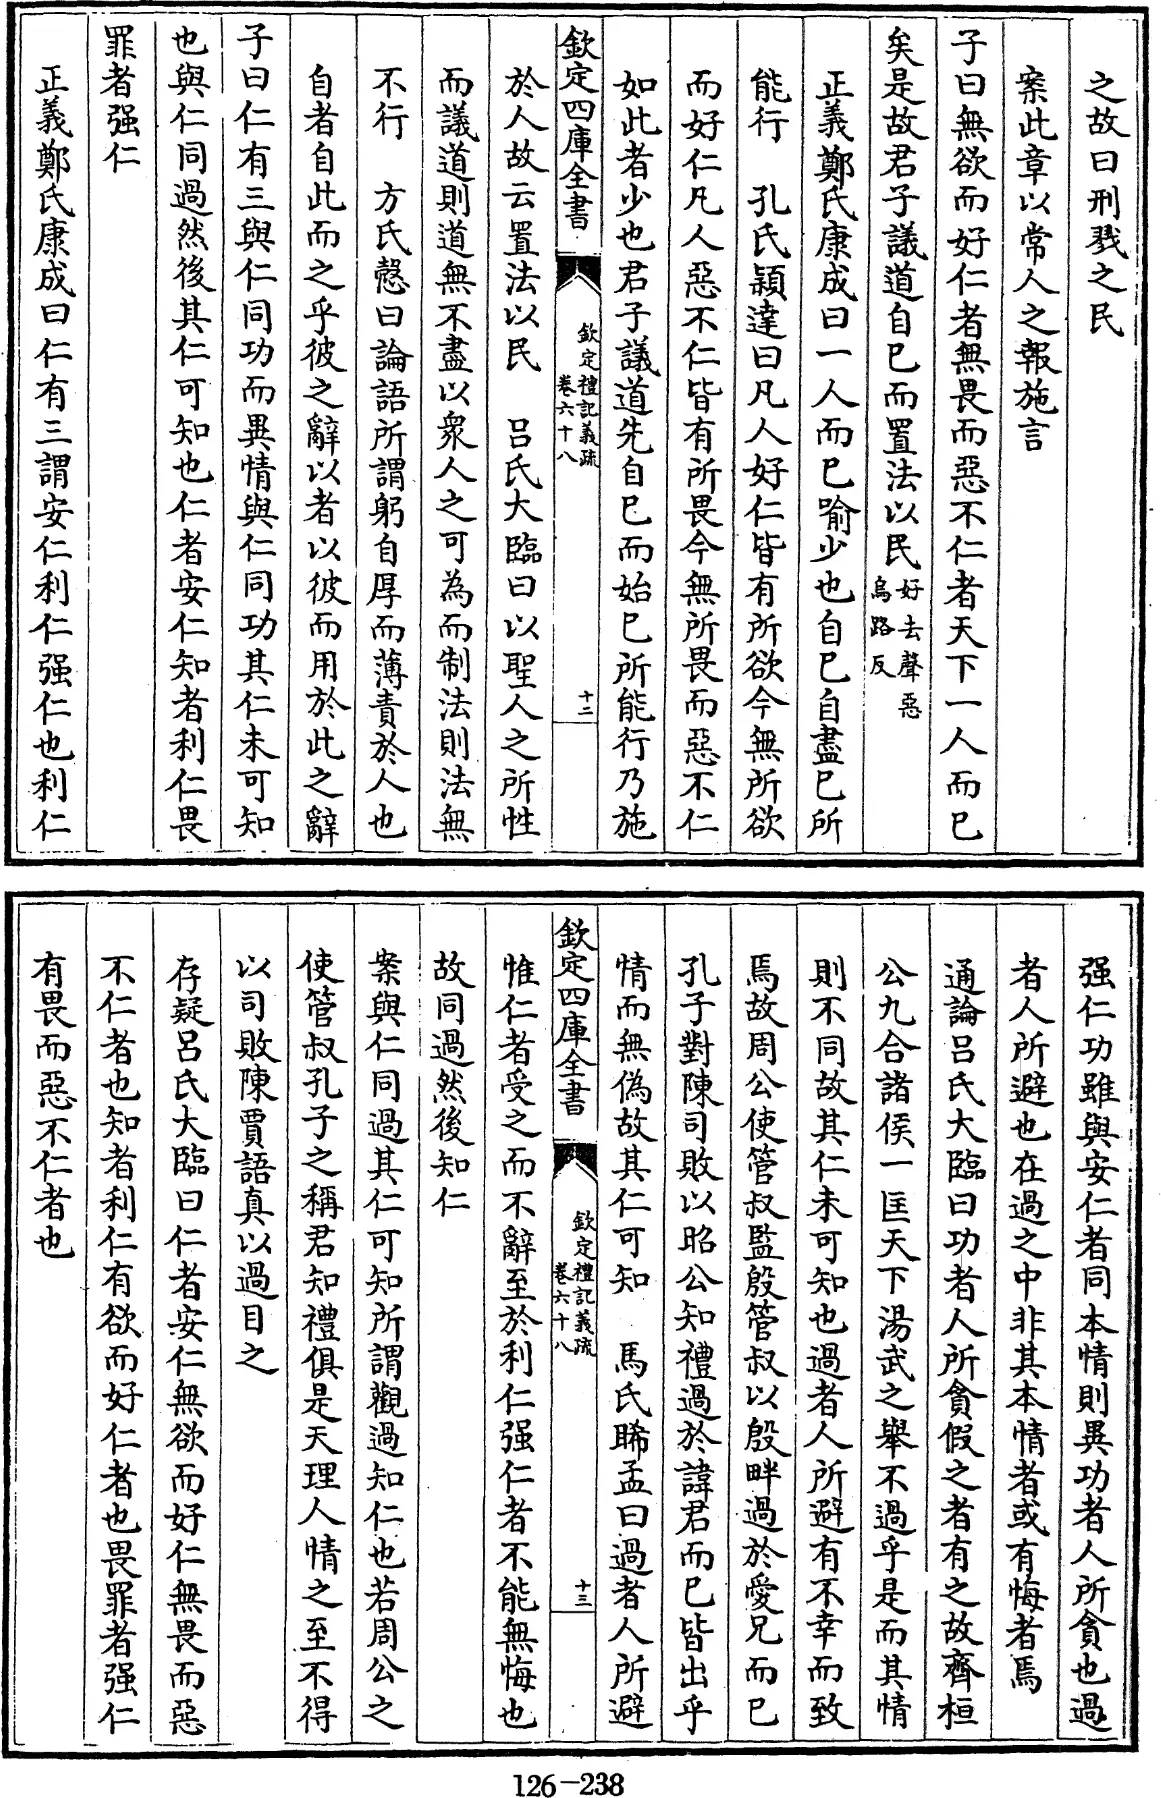 之故曰刑戮之民
案此章以常人之報施言
子曰無欲而好仁者無畏而惡不仁者天下一人而已
矣是故君子議道自已而置法以民好去聲惡
烏路反
正義鄭氏康成曰一人而已喻少也自已自盡已所
能行　孔氏穎達曰凡人好仁皆有所欲今無所欲
而好仁凡人惡不仁皆有所畏今無所畏而惡不仁
如此者少也君子議道先自已而始已所能行乃施
欽定四庫全書
欽定禮記義疏
卷六十八
十二
於人故云置法以民　呂氏大臨曰以聖人之所性
而議道則道無不盡以衆人之可為而制法則法無
不行　方氏慤曰論語所謂躬自厚而薄責於人也
自者自此而之乎彼之辭以者以彼而用於此之辭
子曰仁有三與仁同功而異情與仁同功其仁未可知
也與仁同過然後其仁可知也仁者安仁知者利仁畏
罪者强仁
正義鄭氏康成曰仁有三謂安仁利仁强仁也利仁
强仁功雖與安仁者同本情則異功者人所貪也過
者人所避也在過之中非其本情者或有悔者焉
通論呂氏大臨曰功者人所貪假之者有之故齊桓
公九合諸侯一匡天下湯武之舉不過乎是而其情
則不同故其仁未可知也過者人所避有不幸而致
焉故周公使管叔監殷管叔以殷畔過於愛兄而已
孔子對陳司敗以昭公知禮過於諱君而已皆出乎
情而無偽故其仁可知　馬氏睎孟曰過者人所避
欽定四庫全書
欽定禮記義疏
卷六十八
十三
惟仁者受之而不辭至於利仁强仁者不能無悔也
故同過然後知仁
案與仁同過其仁可知所謂觀過知仁也若周公之
使管叔孔子之稱君知禮俱是天理人情之至不得
以司敗陳賈語真以過目之
存疑呂氏大臨曰仁者安仁無欲而好仁無畏而惡
不仁者也知者利仁有欲而好仁者也畏罪者强仁
有畏而惡不仁者也
126-238